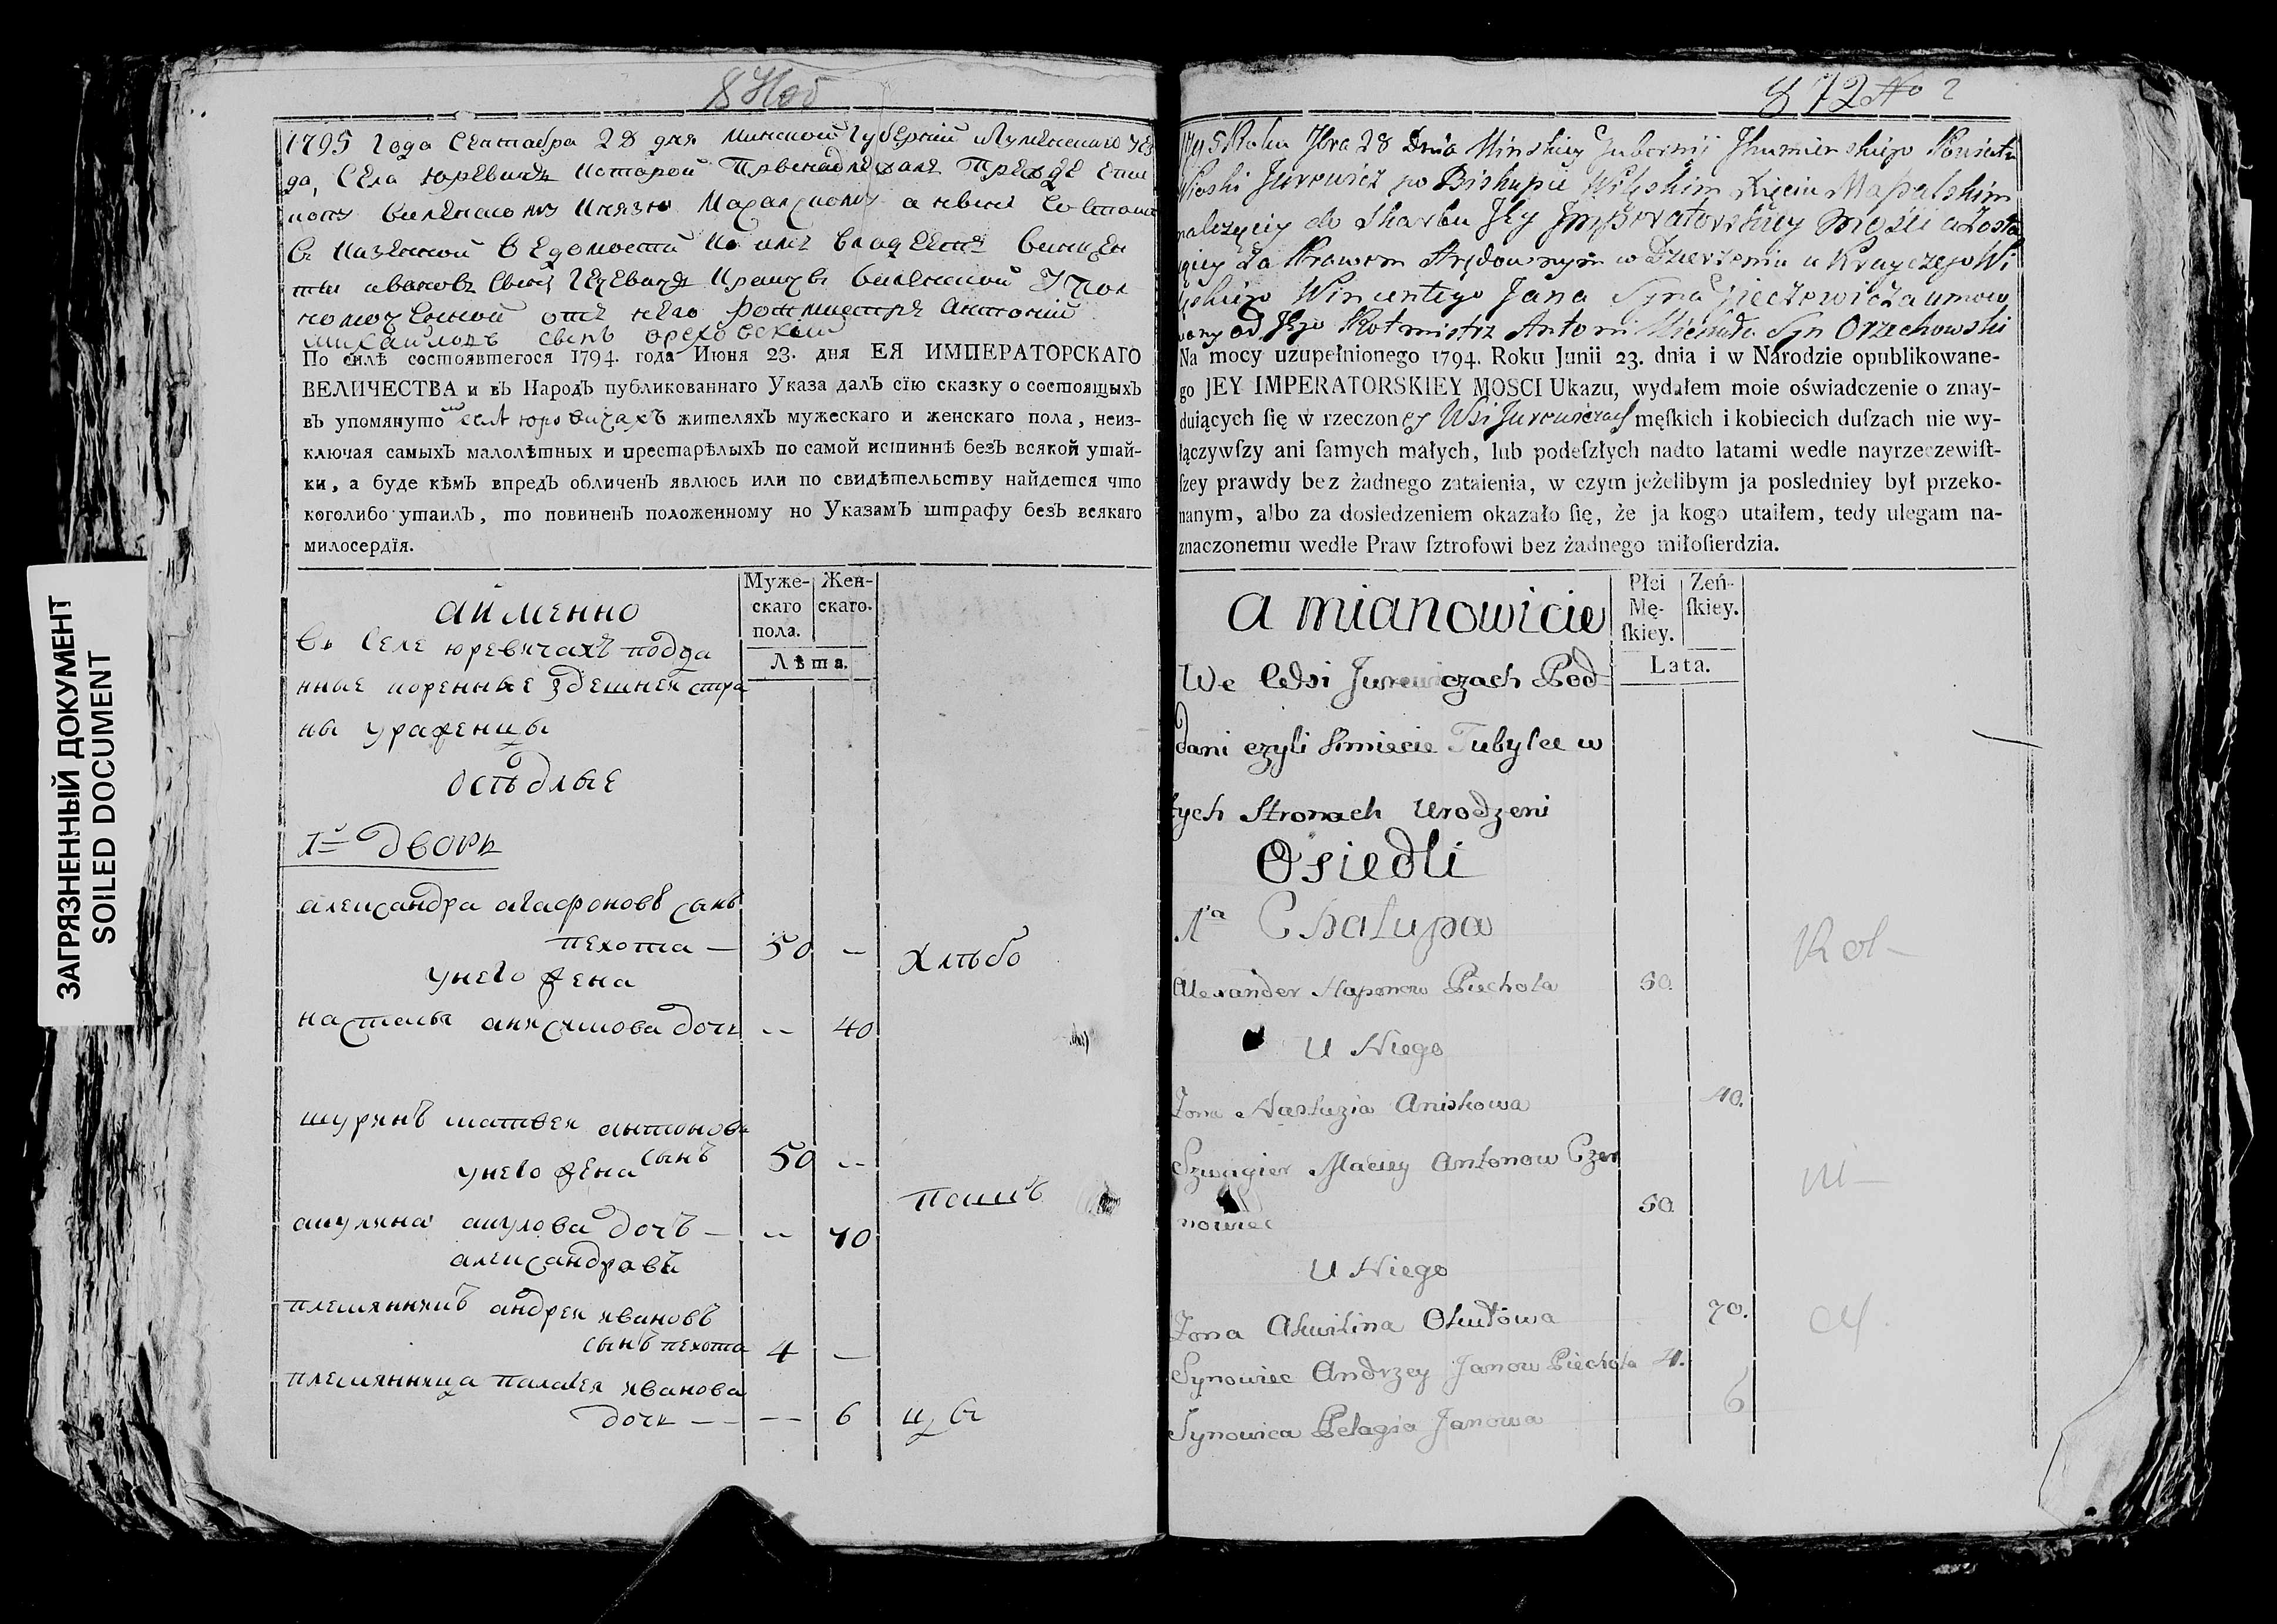 ЗАГРЯЗНЕННЫЙ ДОКУМЕНТ
SOILED DOCUMENT
1795 года Сентабра 28 дня минской Губерний
да, Села юревичъ которой Принадлежалъ Преждѣ епис
копу виленскому Князю а нынѣ состоит
в казенной ведомости
ты ивановъ сынъ
Ротмистръ антоній
михайловъ сынъ ореховский
По силѣ состоявшегося 1794. года Июня 23. дня ЕЯ ИМПЕРАТОРСКАГО
ВЕЛИЧЕСТВА и въ Народъ публикованнаго Указа далъ сїю сказку о состоящыхъ
въ упомянуто селѣ юровичахъ жителяхъ мужескаго и женскаго пола, неиз-
ключая самыхъ малолѣтныхъ и престарѣлыхъ по самой истиннѣ безъ всякой утай-
ки, а буде кѣмъ впредъ обличенъ явлюсь или по свидѣтельству найдется что
коголибо утаилъ, то повиненъ положенному по Указамъ штрафу безъ всякаго
милосердїя.
Муже- Жен-
скаго скаго.
пола.
Лѣта.
аименно
въ Селе юревичахъ подда
нные коренные здешнея стра
ны ураженцы
осѣдлые
1й дворъ
александра агафоновъ сынъ
пехота — 50 —
унего жена
настасья анисимова дочь -- 40
шуринъ матвеи антонова
сынъ 50 --
унего жена
акулина акулова дочъ — -- 70
александравъ
племянникъ андреи ивановъ
сынъ пехота 4 —
племянница палагея иванова
дочь -- -- 6
872 No 2
1795 Roku 7bra 28 Dnia Minskiey Gubernij Jhumienskiego Powiatu
Wioski Jurewicz po Biskupie Wileskim Xięciu Massalskim
należącey do Skarbu Jey Jmperatorskiey Mosci a Zosta
iącey Za Prawem Arędownym w Dzierżeniu u Krayczego Wi
Wincentego Jana Syna Gieczewicza umoco
wany od Jego Rotmistrz Antoni Michała Syn Orzechowski
Na mocy uzupełnionego 1794. Roku Junii 23. dnia i w Narodzie opublikowane-
go JEY IMPERATORSKIEY MOSCI Ukazu, wydałem moie oświadczenie o znay-
duiących ſię w rzeczoney Wsi Jurewiczach męſkich i kobiecich duſzach nie wy-
łączywſzy ani ſamych małych, lub podeſzłych nadto latami wedle nayrzeczewiſt-
ſzey prawdy bez żadnego zataienia, w czym jeżelibym ja posledniey był przeko-
nanym, albo za dosledzeniem okazało ſię, że ja kogo utaiłem, tedy ulegam na-
znaczonemu wedle Praw ſztrofowi bez żadnego miłoſierdzia.
Płci Zeń-
Mę- ſkiey.
ſkiey.
Lata.
a mianowicie
We Wsi Jurewiczach Pod
dani czyli Kmiecie Tubylce w
tych Stronach Urodzeni
Osiedli
1a Chalupa
Alexander Haponow Piechota 50.
U Niego
Żona Nastazia Aniskowa 40.
Szwagier Maciey Antonow Czer
nowiec 50.
U Niego
Żona Akwilina Okułowa 70.
Synowiec Andrzey Janow Piechota 4.
Synowica Pelagia Janowa 6